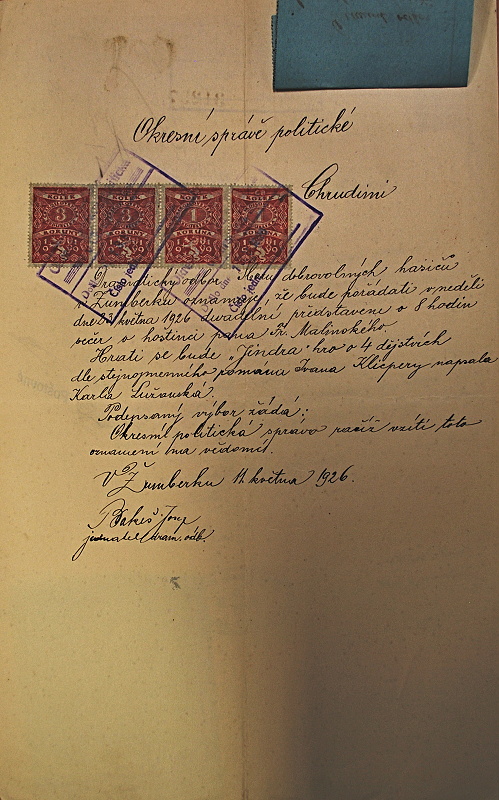 Okresní správě politické
Chrudimi
KOLEK KOLEK KOLEK
3 3 1
KORUNY KORUNY KORUNU
Dramatický odbor dobrovolných hasičů
v Žumberku oznamuje, že bude pořádati v neděli
dne 23 května 1926 divadelní představení o 8 hodin
večer v hostinci pana Fr. Malinského.
Hráti se bude „Jindra" hro o 4 dějstvích
dle stejnojmenného románu Ivana Klicpery napsala
Karla Lužanská.
Podepsaný výbor žádá:
Okresní politická správo račiž vzíti toto
oznámení na vědomí.
V Žumberku 11. května 1926.
Bakeš Josef
jednatel dram. odb.